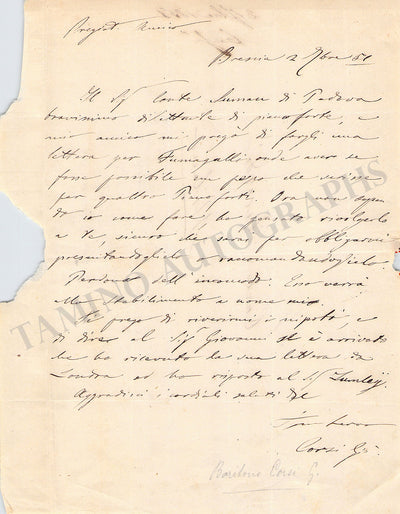 Pregiat. Amico
Brescia 2 Xbre 51
Il Sig. Conte Suman di Padova
bravissimo dilettante di pianoforte, e
mio amico mi prega di fargli una
lettera per Fumagalli onde avere se
fosse possibile un pezzo che servisse
per quattro Pianoforti. Ora non sapen
do io come fare ho pensato rivolgerlo
a te, sicuro che sarai per obbligarmi
presentandoglielo e raccomandandoglielo
Perdona dell'incomodo. Esso verrà
allo Stabilimento a nome mio.
Ti prego di riverirmi i nipoti, e
di dire al Sig. Giovanni se è arrivato
che ho ricevuto la sua lettera da
Londra ed ho risposto al Sig. Lumley.
Aggradisci i cordiali saluti del
Tuo
Corsi G.
Baritono Corsi G.
TAMINO AUTOGRAPHS